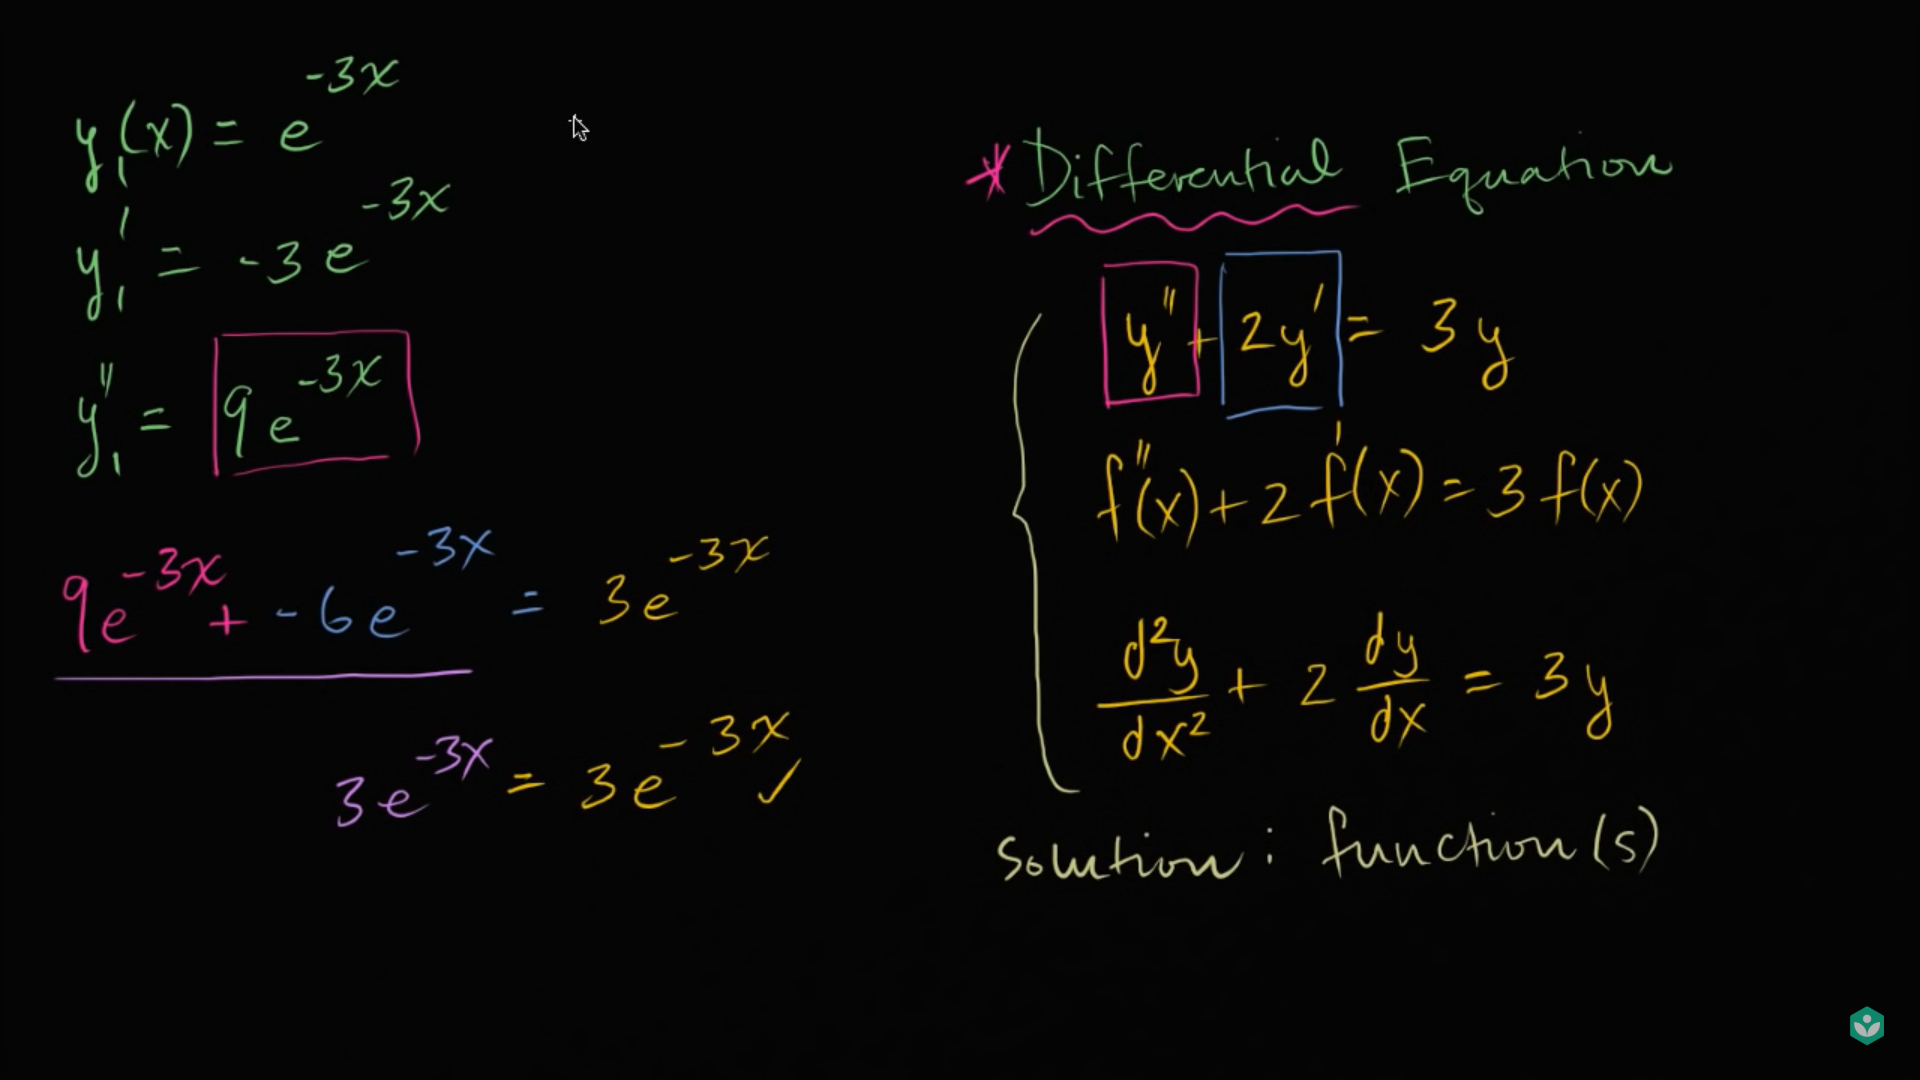 y₁(x) = e^{-3x}
y₁' = -3e^{-3x}
y₁'' = 9e^{-3x}
9e^{-3x} + -6e^{-3x} = 3e^{-3x}
3e^{-3x} = 3e^{-3x} ✓
* Differential Equation
y'' + 2y' = 3y
f''(x) + 2f'(x) = 3f(x)
d²y/dx² + 2 dy/dx = 3y
Solution: function(s)